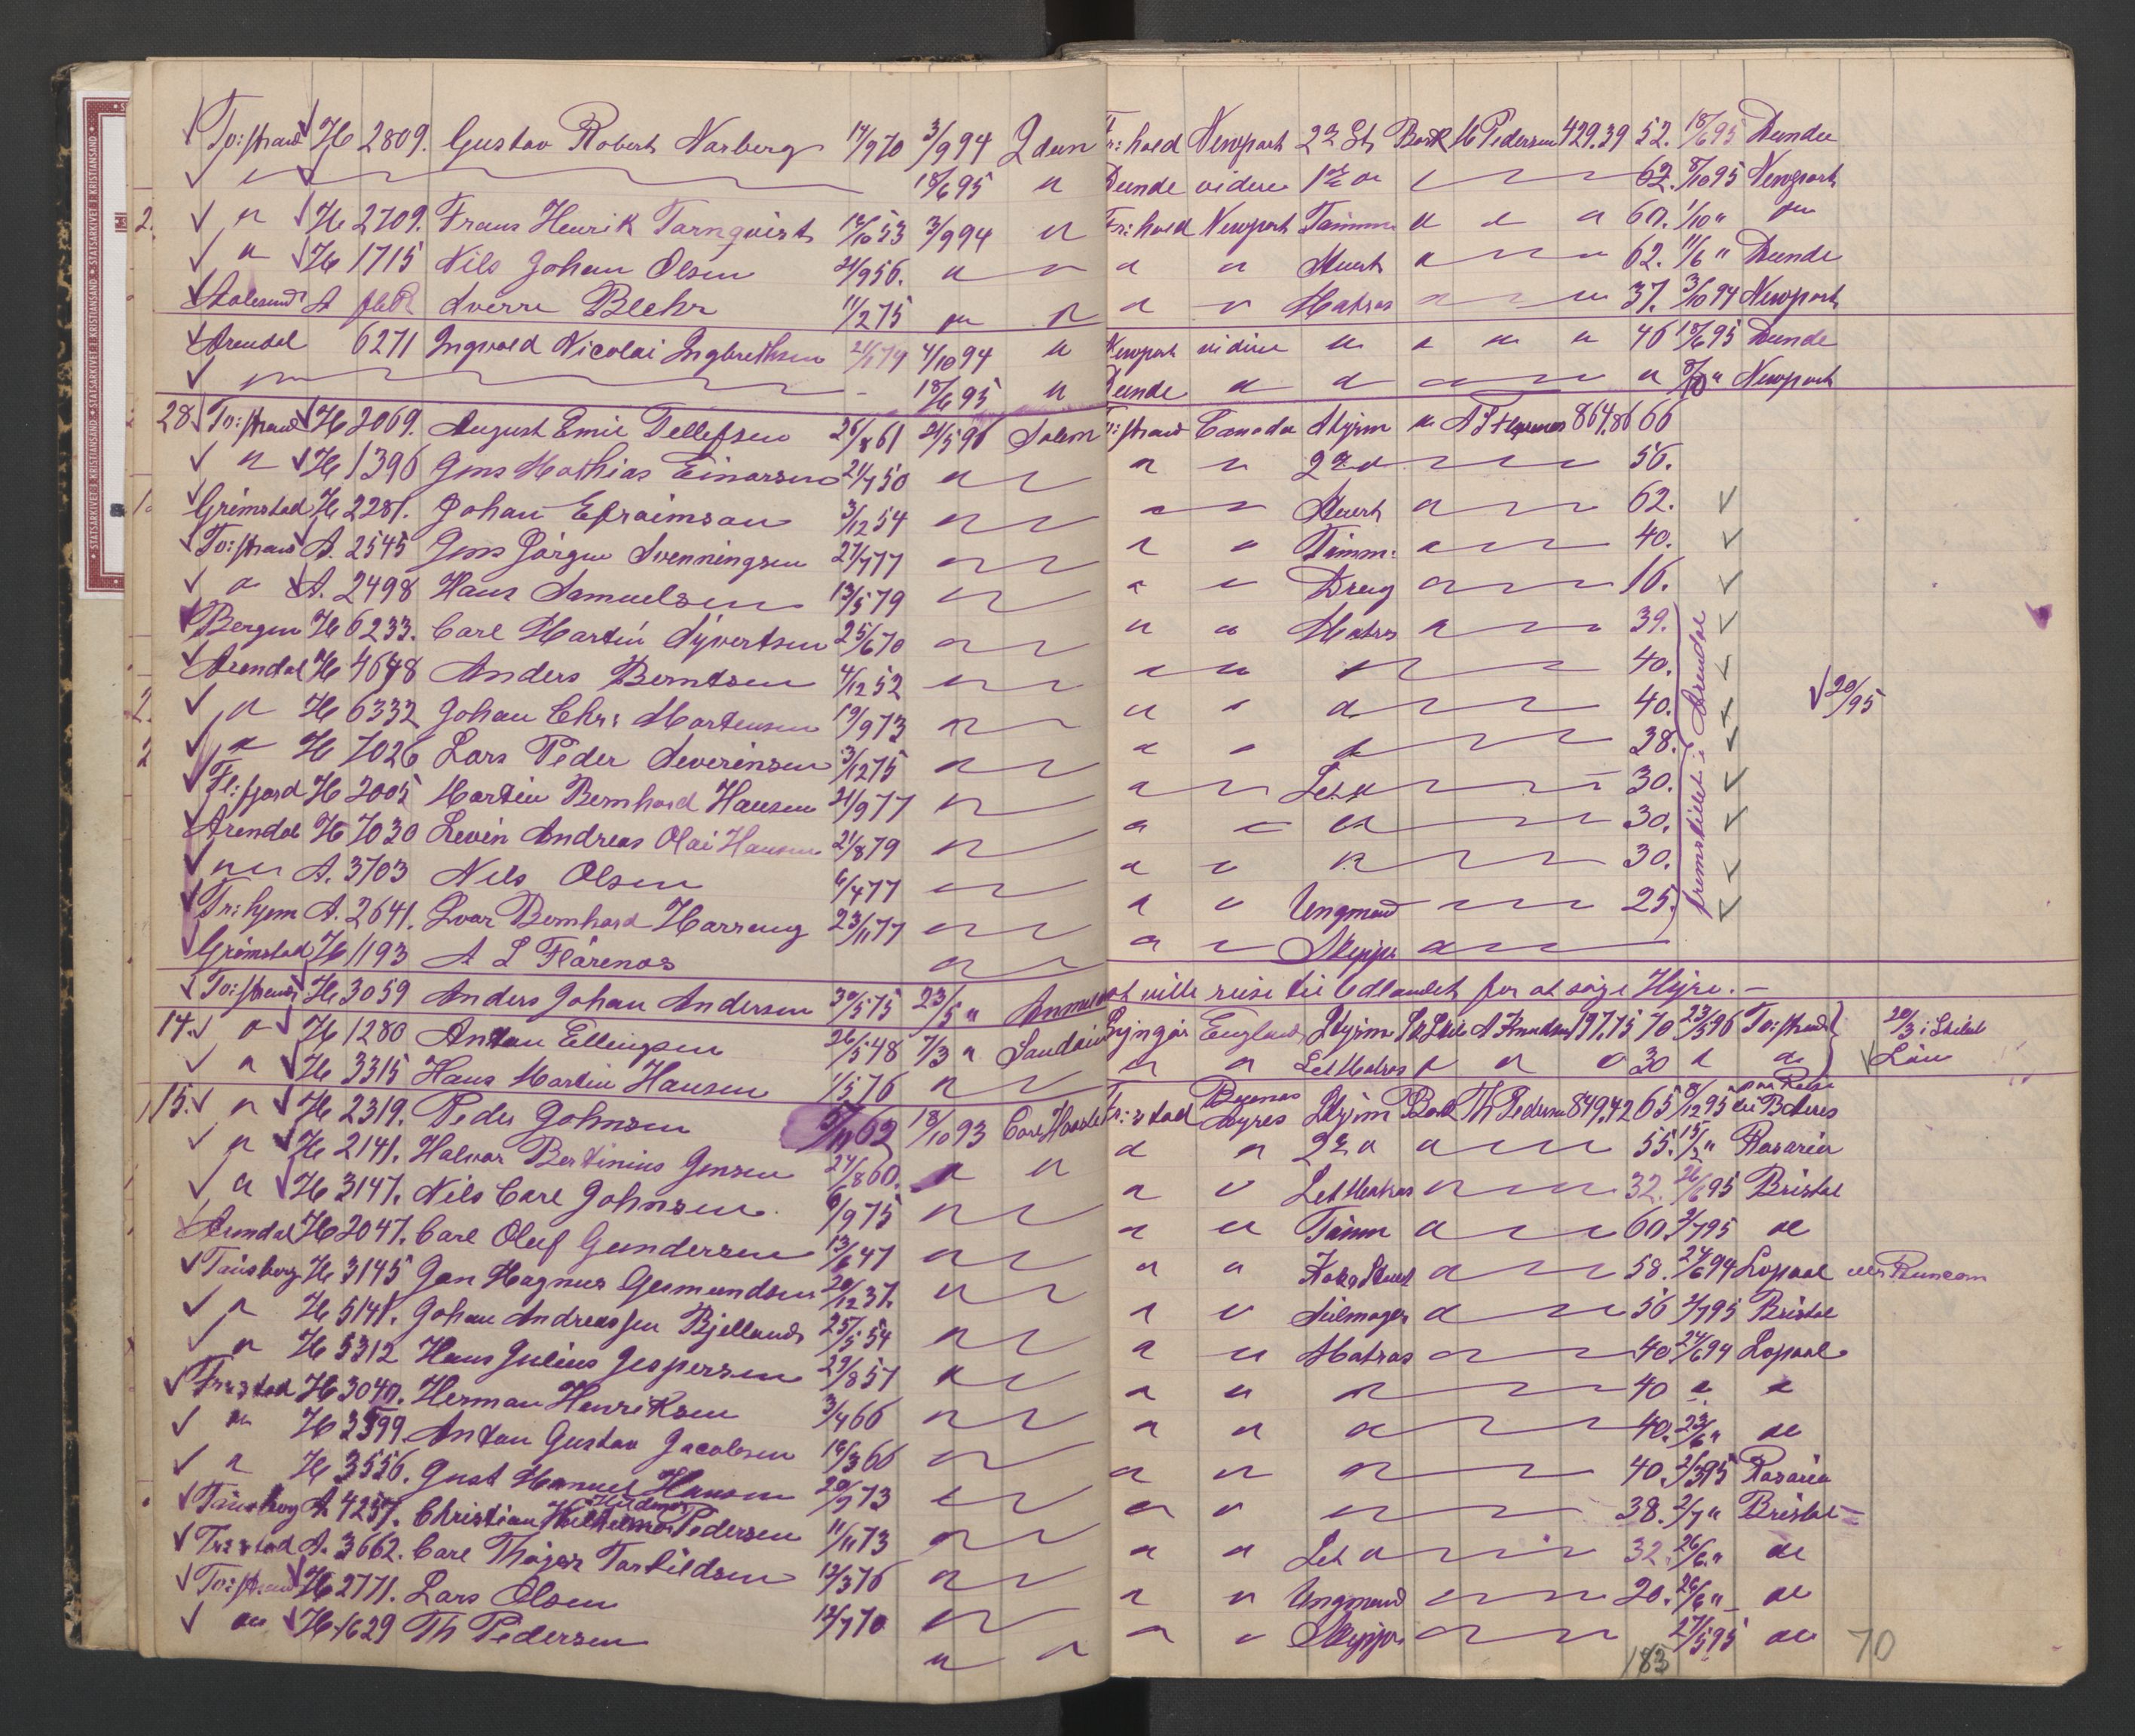 To:strand H 2809. Gustav Robert Narberg 17/9 70 3/9 94 Idun Fr:hald Newport 2den St Bark M Pedersen 429.39 52. 18/6 95 Dundee
" 18/6 95 " Dunde videre 1ste " 62. 8/10 95 Newport
2. " H 2709. Frans Henrik Tarnqvist 12/10 53 3/9 94 " Fr:hald Newport Tømm " " " 60. 1/10 " "
" H 1715 Nils Johan Olsen 21/9 56. " " " " Stuert " 62. 11/6 " Dunde
Aalesund A Sverre Blehr 11/2 75 " " " " Matros " 37. 3/10 94 Newport
Arendal 6271 Ingvald Nicolai Ingbrethsen 21/1 79 4/10 94 " Newport videre " " " " 40 18/6 95 Dunde
" 18/6 95 " Dunde " " " " 8/10 " Newport
28 To:strand H 2069. August Emil Tellefsen 26/8 61 21/5 96 Solem To:strand Canada Styrm " A L Flørenes 864.86 66
" H 1396 Jens Mathias Einarsen 21/7 50 " " " 2den " 56.
Grimstad H 2281. Johan Efraimsen 3/12 54 " " Stuert " 62.
To:strand A. 2545 Jens Jørgen Svenningsen 27/7 77 " " " Tømm: " 40.
" A. 2498 Hans Samuelsen 13/5 79 " " " Dreng " 16.
Bergen H 6233. Carl Martin Syvertsen 25/6 70 " " " Matros " 39.
Arendal H 4648 Anders Berntsen 4/12 52 " " " " 40.
" H 6332 Johan Chr: Martensen 19/9 73 " " " " 40. 20/95
" H 7026 Lars Peder Severinsen 3/12 75 " " " " 38.
Fl:fjord H 2005 Martin Bernhard Hansen 21/9 77 " " Let " 30.
Arendal H 7030 Levin Andreas Olai Hansen 21/8 79 " " " " 30.
" A. 3703 Nils Olsen 6/4 77 " " " " 30.
Tr:hjem A. 2641. Ivar Bernhard Harrang 23/11 77 " " " Ungmand 25.
fremstillet i Arendal
Grimstad H 1193 A L Flørenes " " Skipper "
To:strand H 3059 Anders Johan Andersen 30/5 75 23/5 " Anmeldt at ville reise til Udlandet for at søge Hyre. –
14. " H 1280 Antan Ellingsen 26/5 48 7/3 " Lyngør England Styrm A Knudsen 197.15 70 23/5 96 To:strand 20/3 i
" H 3315 Hans Martin Hansen 1/5 76 " " " Let Matros " " " 30 " "
15. " H 2319. Peder Johnsen 5/11 62 18/10 93 Carl Haasted Fr:stad Buenos Ayres Styrm Bark Th Pedersen 849.42 65 8/12 95 paa Reise til B Aires
" H 2141. Halvor Bertinius Jensen 24/8 60. " " " " 2den " " 55. Rosario
" H 3147. Nils Carl Johnsen 6/9 75 " " " Let Matros " 32. 26/6 95 Bristol
Arendal H 2047. Carl Oluf Gundersen 13/6 47 " " " Tømm " 60. 2/7 95 de
Tønsberg H 3145 Jan Magnus Gesmundsen 20/12 37. " " " Kok & Stuert " 58. 24/6 94 Lopool eller Runcorn
" H 5141. Johan Andreassen Bjelland 25/5 54 " " " Seilmager " 56 2/7 95 Bristol
" H 5312 Hans Julius Jespersen 29/8 57 " " " Matros " 40 24/6 94 Lopool
Fr:stad H 3040. Herman Henriksen 3/4 66 " " " " 40 " "
" H 2599. Antan Gustav Jacobsen 16/3 66 " " " " 40. 23/6 " de
" H 3556. Gust Manuel Hansen 20/7 73 " " " " 40. 2/3 95 Rosario
Tønsberg A 4257. Christian Pedersen 11/11 73 " " " " 38. 2/7 " Bristol
Fr:stad A. 3662. Carl Thajer Tarkildsen 12/3 76 " " " Let " 32. 26/6 " de
To:strand H 2771. Lars Olsen 12/7 70 " " " Ungmand 20. 26/6 " de
" H 1629 Th Pedersen " " " " Skipper " 27/5 95 de
183
70
STATSARKIVET I KRISTIANSAND